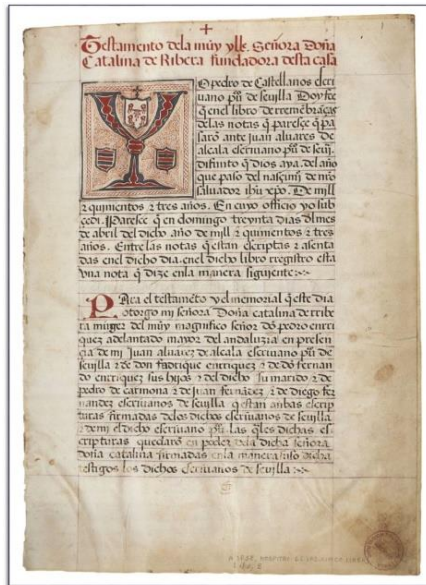 Testamento dela muy ylle. Señora Doña
Catalina de Ribera fundadora desta casa
Yo pedro de Castellanos escri
uano pu de seuilla Doy fee
q enel libro de remẽbrãças
delas notas q paresçe q pa
saro ante juan aluares de
alcala escriuano pu de seui.
difunto q dios aya. del año
que paso del nasçimj de nro
saluador ihu xpo. De mill
z quinientos z tres años. En cuyo offiçio yo sub
çedi. Paresçe q en domingo treynta dias dl mes
de abril del dicho año de mill z quinientos z tres
años. Entre las notas q estan escriptas z asenta
das enel dicho dia. enel dicho libro rregistro esta
vna nota q dize enla manera siguiente:~
Para el testamẽto y el memorial q este dia
otorgo mi señora Doña catalina de rribe
ra muger del muy magnifico señor dõ pedro enrri
quez adelantado mayor del andaluzia en presen
çia de mi Juan aluarez de alcala escriuano pu de
seuilla z de don fadrique enrriquez z de dõ fernan
do enrriquez sus hijos z del dicho su marido z de
pedro de carmona z de juan fernãdez z de diego fer
nandez escriuanos de seuilla q estan anbas escrip
turas firmadas delos dichos escriuanos de seuilla
z de mi el dicho escriuano pu. las qles dichas es
cripturas quedarõ en poder dela dicha señora
doña catalina firmadas enla manera suso dicha
testigos los dichos escriuanos de seuilla :~